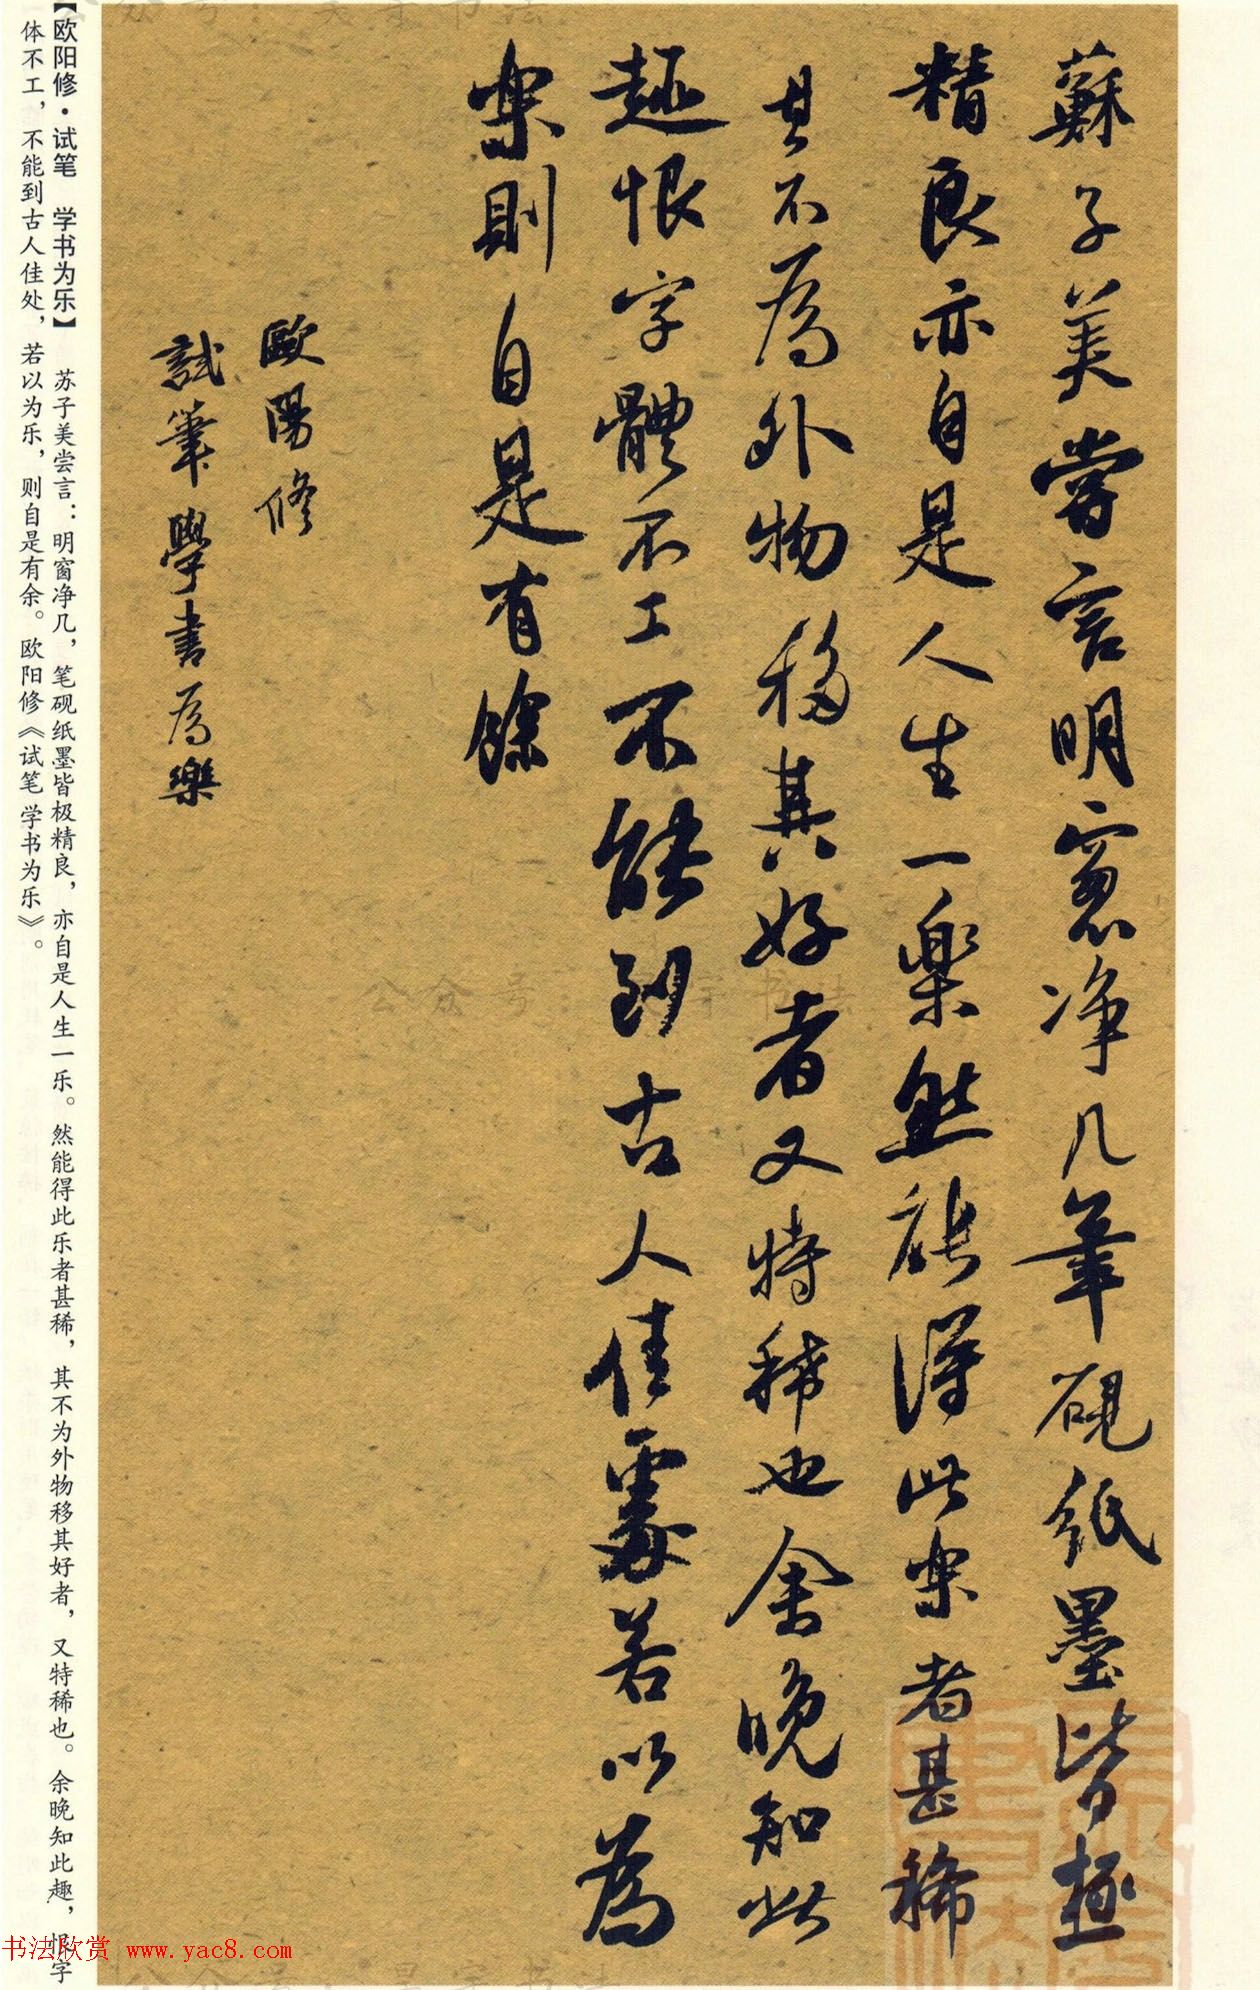 蘇子美嘗言明窓净几筆硯紙墨皆極
精良亦自是人生一樂然能得此樂者甚稀
其不為外物移其好者又特稀也余晚知此
趣恨字體不工不能到古人佳處若以為
樂則自是有餘
歐陽修
試筆學書為樂
【欧阳修·试笔　学书为乐】　苏子美尝言：明窗净几，笔砚纸墨皆极精良，亦自是人生一乐。然能得此乐者甚稀，其不为外物移其好者，又特稀也。余晚知此趣，恨字
体不工，不能到古人佳处，若以为乐，则自是有余。欧阳修《试笔 学书为乐》。
书法欣赏 www.yac8.com